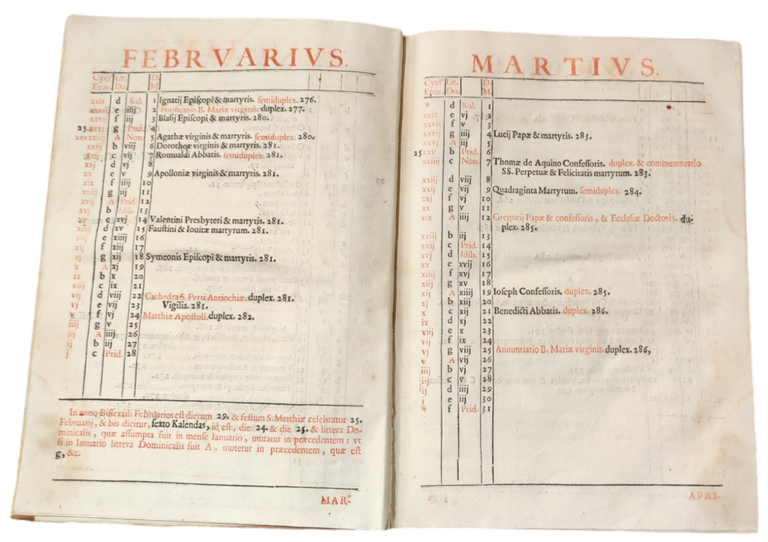 FEBRVARIVS.
Cycl⁹ Lit. D.
Epac. Do. M.
xxix d Kal. 1 Ignatij Episcopi & martyris. semiduplex. 276.
e iiij 2 Purificatio B. Mariæ virginis. duplex. 277.
f iij 3 Blasij Episcopi & martyris. 280.
25. g Prid. 4
A Non. 5 Agathæ virginis & martyris. semiduplex. 280.
b viij 6 Dorotheæ virginis & martyris. 281.
c vij 7 Romualdi Abbatis. semiduplex. 281.
d vj 8
e v 9 Apolloniæ virginis & martyris. 281.
f iiij 10
g iij 11
A Prid. 12
b Idib. 13
c xvj 14 Valentini Presbyteri & martyris. 281.
d xv 15 Faustini & Iouitæ martyrum. 281.
e xiiij 16
f xiij 17
g xij 18 Symeonis Episcopi & martyris. 281.
A xj 19
x b x 20
ix c ix 21
d viij 22 Cathedra S. Petri Antiochiæ. duplex. 281.
vij e vij 23 Vigilia. 281.
vj f vj 24 Matthiæ Apostoli. duplex. 282.
v g v 25
iiij A iiij 26
iij b iij 27
c Prid. 28
In anno Bissextili Februarius est dierum 29. & festum S. Matthiæ celebratur 25.
Februarij, & bis dicitur, sexto Kalendas, id est, die 24. & die 25. & littera Do-
minicalis, quæ assumpta fuit in mense Ianuario, mutatur in præcedentem: vt
si in Ianuario littera Dominicalis fuit A, mutetur in præcedentem, quæ est
g, &c.
MAR-
MARTIVS.
Cycl⁹ Lit. D.
Epac. Do. M.
* d Kal. 1
e vj 2
f v 3
g iiij 4 Lucij Papæ & martyris. 283.
A iij 5
25 b Prid. 6
c Non. 7 Thomæ de Aquino Confessoris. duplex. & commemoratio
SS. Perpetuæ & Felicitatis martyrum. 283.
d viij 8
e vij 9 Quadraginta Martyrum. semiduplex. 284.
f vj 10
xx g v 11
xix A iiij 12 Gregorij Papæ & confessoris, & Ecclesiæ Doctoris. du-
plex. 285.
b iij 13
xvij c Prid. 14
xvj d Idib. 15
xv e xvij 16
xiiij f xvj 17
xiij g xv 18
xij A xiiij 19 Ioseph Confessoris. duplex. 285.
xj b xiij 20
x c xij 21 Benedicti Abbatis. duplex. 286.
ix d xj 22
e x 23
vij f ix 24
vj g viij 25 Annuntiatio B. Mariæ virginis. duplex. 286,
v A vij 26
iiij b vj 27
iij c v 28
d iiij 29
e iij 30
* f Prid. 31
APRI-